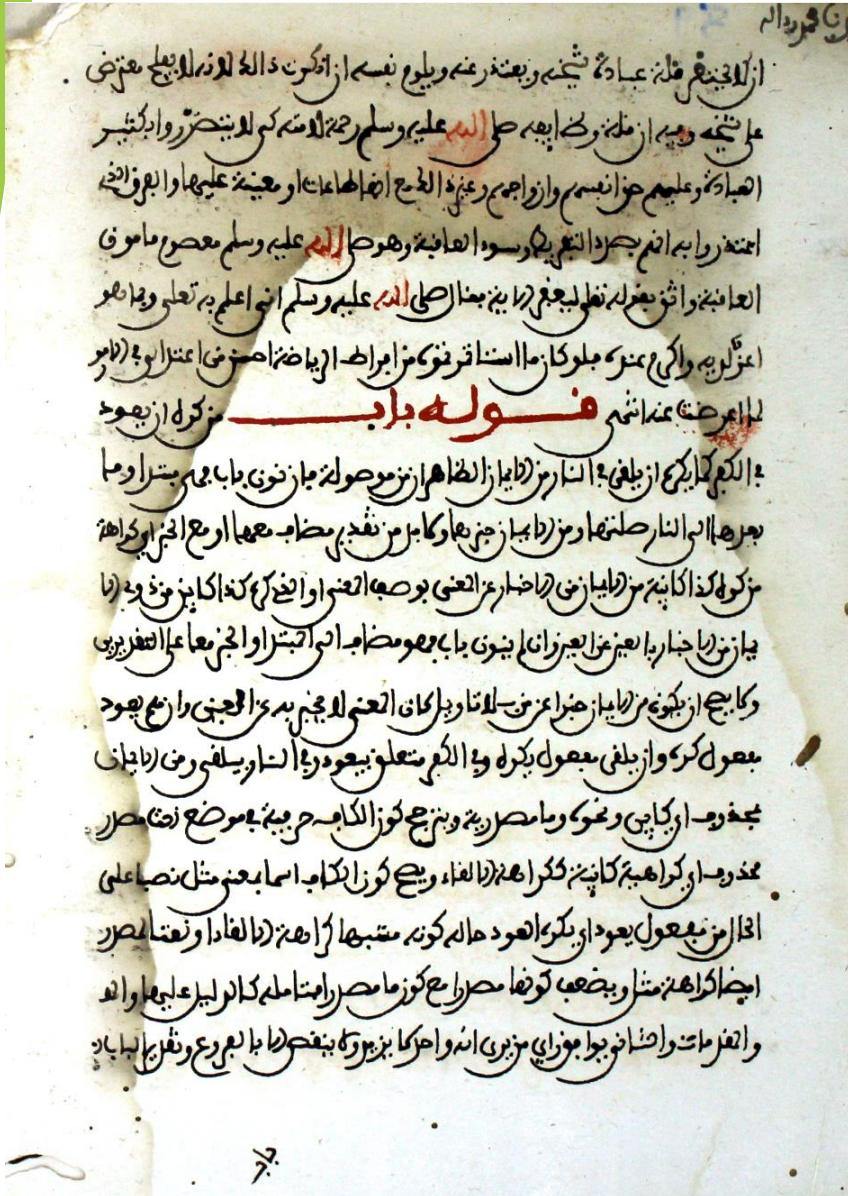 ان لا يحتقر قلة عبادة شيخه ويعتذر عنه ويلوم نفسه ان انكرت ذالك لانه لا يفلح معترض
على شيخه وفيه ان قلة وظايفه صلى الله عليه وسلم رحمة لامته كي لا يتضرروا بكثير
العبادة وعليهم حق انفسهم وازواجهم وغير ذالك مع انها طاعات او معينة عليها والفرق الذي
اعتذروا به انهم بصدد التفريط وسوء العاقبة وهو صلى الله عليه وسلم معصوم مامون
العاقبة واثق بقوله تعلى ليغفر الاية فقال صلى الله عليه وسلم اني اعلم به تعلى وبما هو
اعز لديه واكرم عنده فلو كان ما نحوه من افراط الرياضة احسن من اعتدال في الامو
لما اعرضت عنه انتهى قوله باب من كره ان يعود
في الكفر كما يكره ان يلقى في النار من الايمان الظاهر ان من موصولة فان نون باب فهي مبتدا وما
بعدها الى النار صلتها ومن الايمان خبرها ولا بد من تقدير مضاف معها او مع الخبر اي كراهة
من كره كذا كاينة من الايمان من الاخبار عن المعنى بوصف المعنى او الذي كره كذا كاين من ذوي الا
يمان من الاخبار بالعين عن العين وان لم ينون باب فهو مضاف الى المبتدا والخبر معا على التقديرين
ولا يصح ان يكون من الايمان خبرا عن من بلا تاويل لان المعنى لا يخبر به عن العين وان يعود
مفعول كره وان يلقى مفعول يكره وفي الكفر متعلق بيعود وفي النار بيلقى ومن الايمان
بمحذوف اي كاين ونحوه وما مصدرية ويترجح كون الكاف حرفية في موضع نعت مصدر
محذوف اي كراهية كاينة ككراهة الالقاء ويصح كون الكاف اسما بمعنى مثل نصبا على
الحال من مفعول يعود اي يكره العود حالة كونه مشبها كراهة الالقاء او نعتا لمصدر
ايضا كراهة مثل ويضعف كونها مصدرا مع كون ما مصدرا كالدليل عليها
من يرى انه واحد لا يزيد ولا ينقص الا بالفروع وتقدير